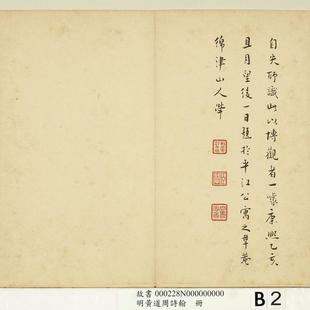 自失聊識此以博觀者一噱康熙乙亥
且月望後一日題於平江公寓之萆菴
綿津山人犖
故書 000228N000000000
明黃道周詩翰 冊
B2